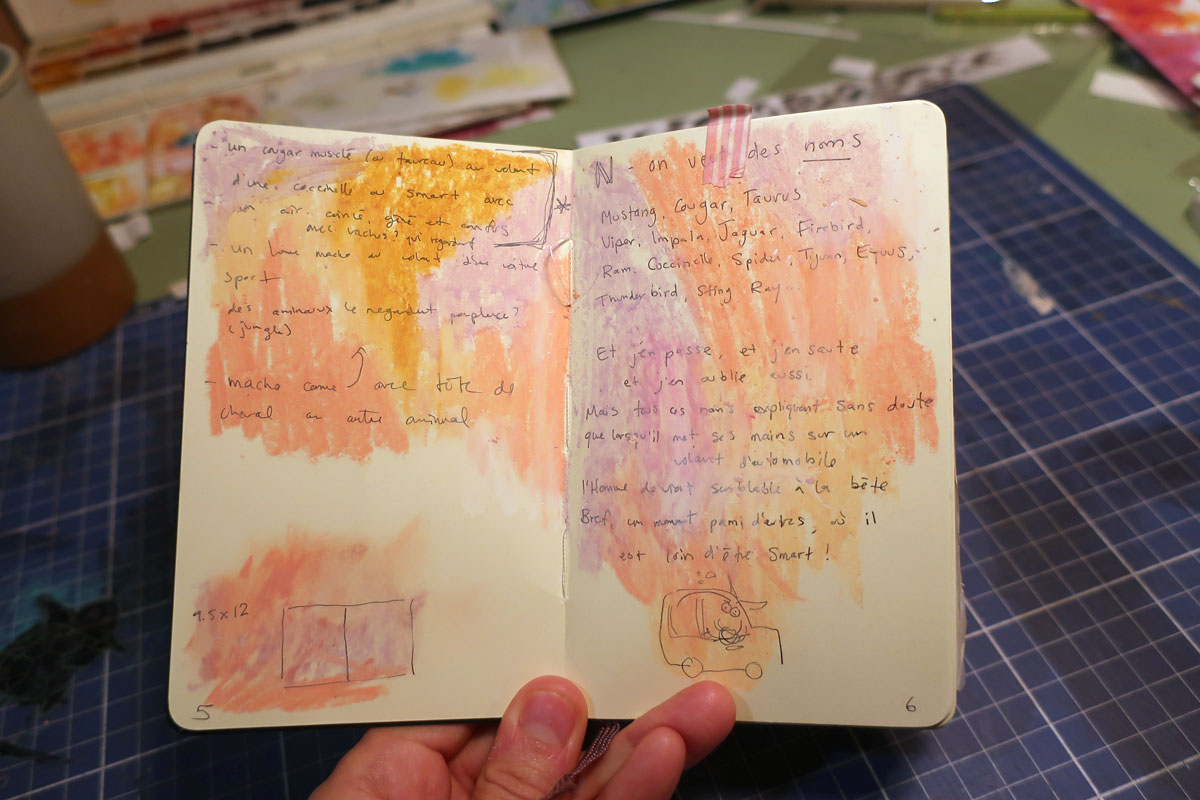 - un cougar musclé (ou taureau) au volant
d'une coccinelle ou smart avec
- un air coincé, gêné et confus
avec vaches? qui regardent
- un homme macho au volant d'une voiture
sport
des animaux le regardent perplexe?
(jungle)
- macho comme avec tête de
cheval ou autre animal
9.5 x 12
5
N - on veut des noms
Mustang, Cougar, Taurus
Viper, Impala, Jaguar, Firebird,
Ram, Coccinelle, Spider, Tiguan, Equus,
Thunderbird, Sting Ray...
Et j'en passe, et j'en saute
et j'en oublie aussi.
Mais tous ces noms expliquent sans doute
que lorsqu'il met ses mains sur un
volant d'automobile
l'Homme devient semblable à la bête
Bref, un moment parmi d'autres, où il
est loin d'être Smart !
6